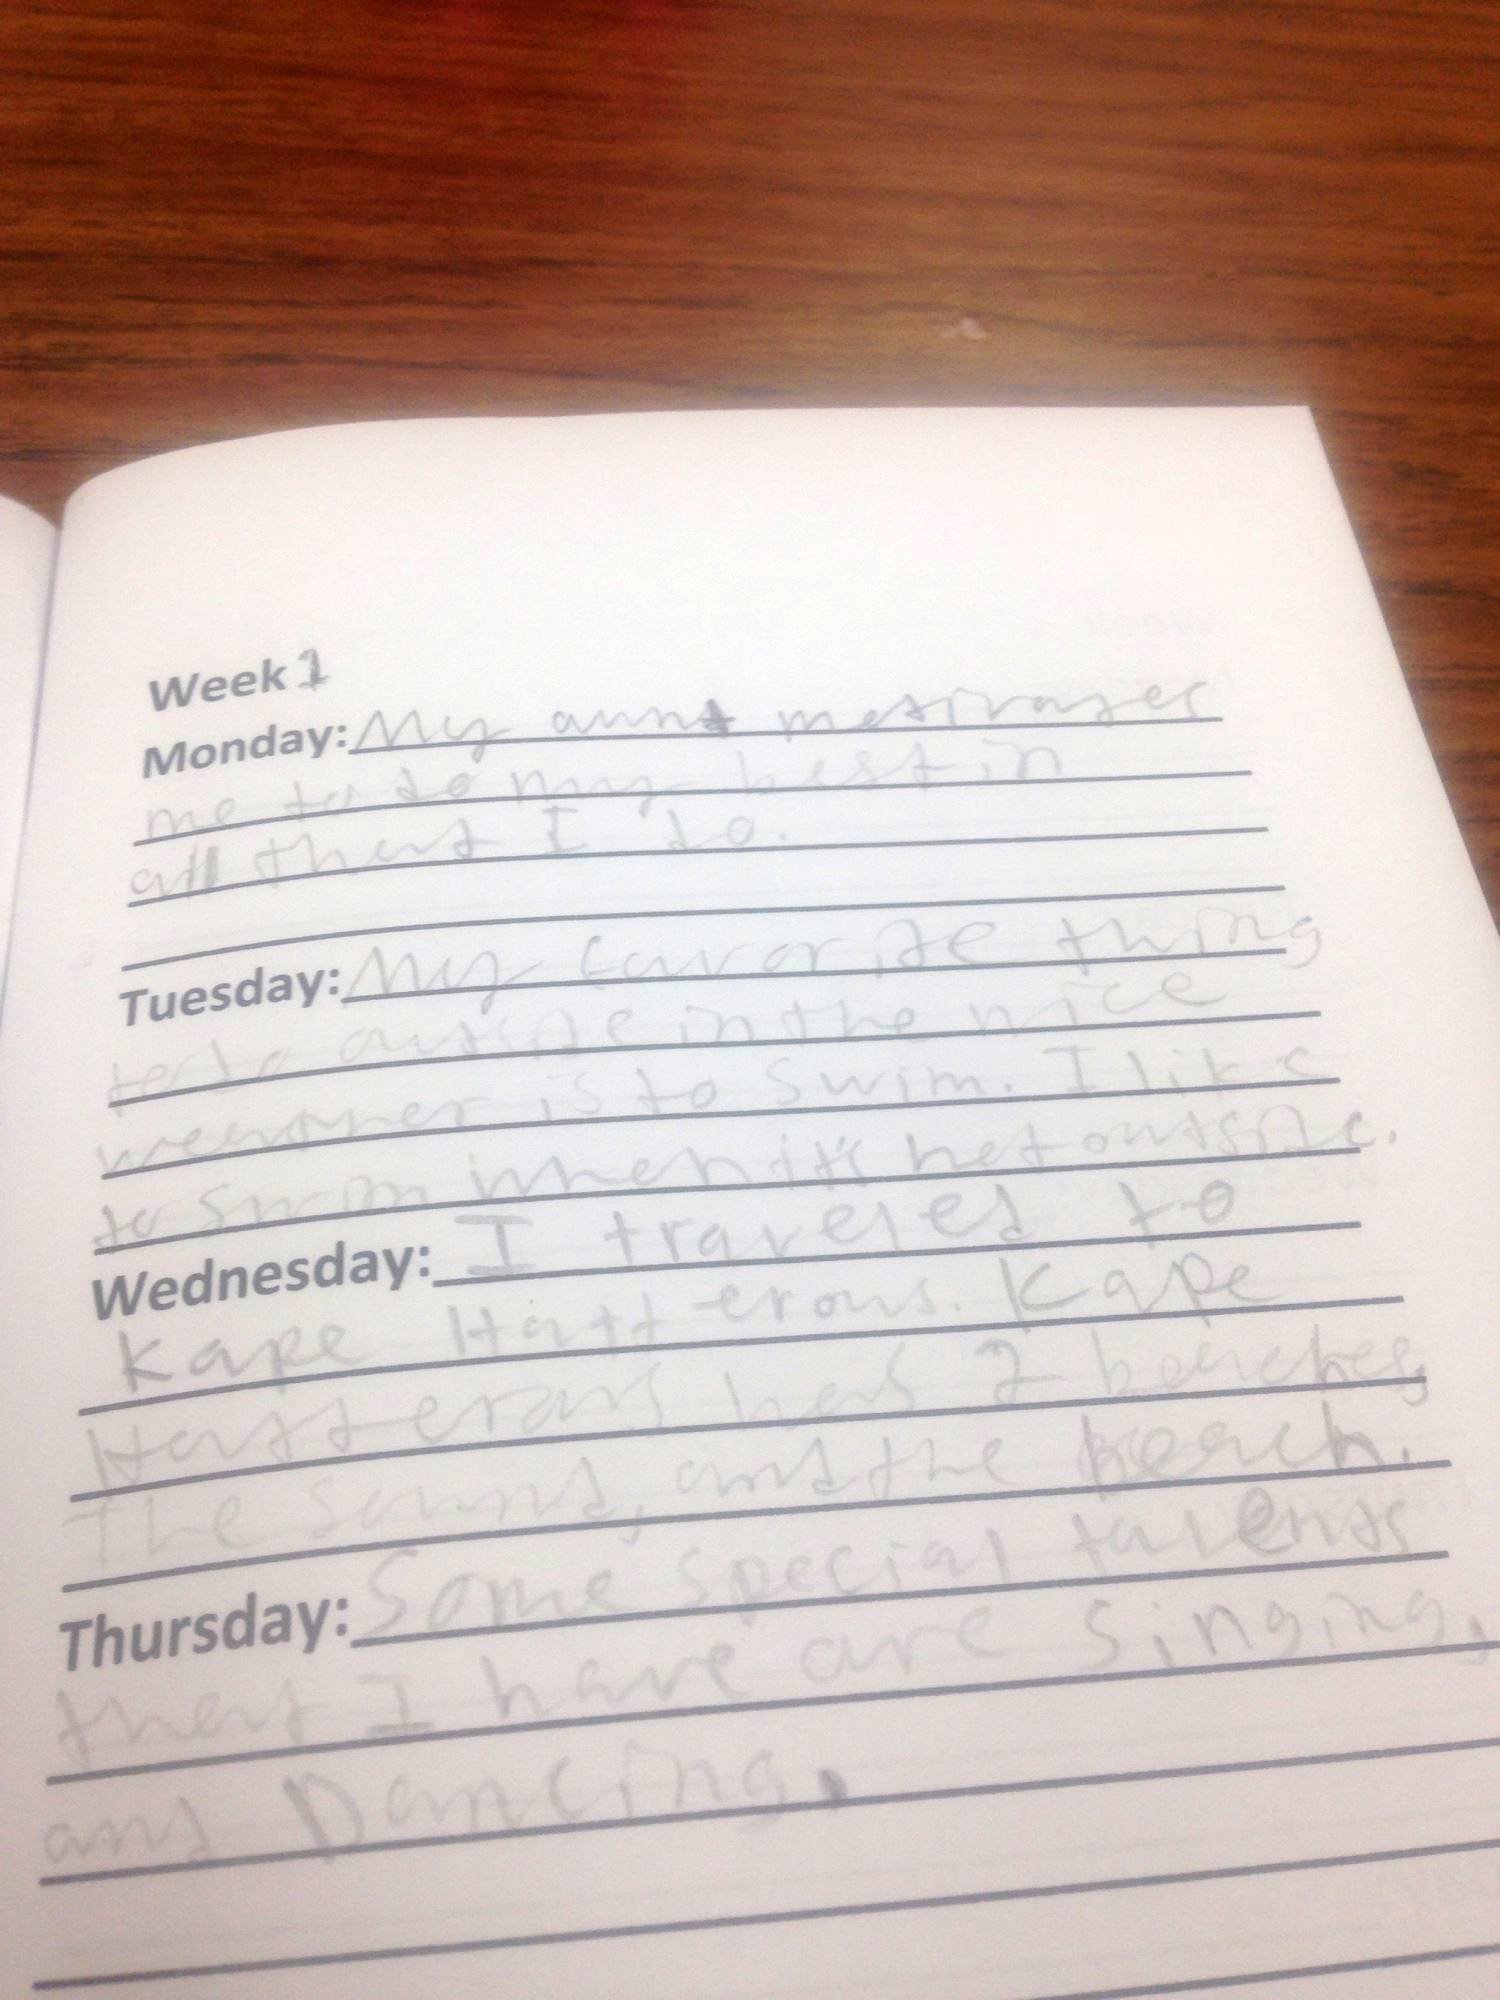 Week 1
Monday: My aunt motivates
me to do my best in
all that I do.
Tuesday: My favorite thing
to do outside in the nice
weather is to swim. I like
to swim when it's hot outside.
Wednesday: I traveled to
Kape Hatterous. Kape
Hatterous has 2 beaches,
The sound, and the beach.
Thursday: Some special talents
that I have are singing,
and Dancing.